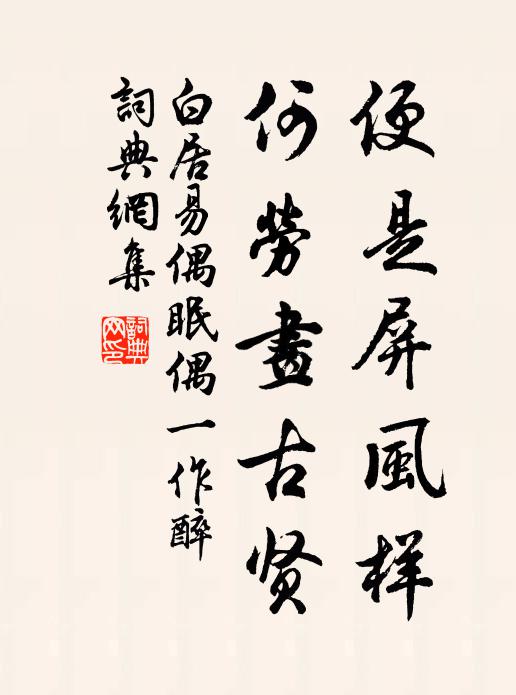 便是屏風样
何勞畫古贤
白居易偶眠偶一作醉
詞典網集
詞典网印